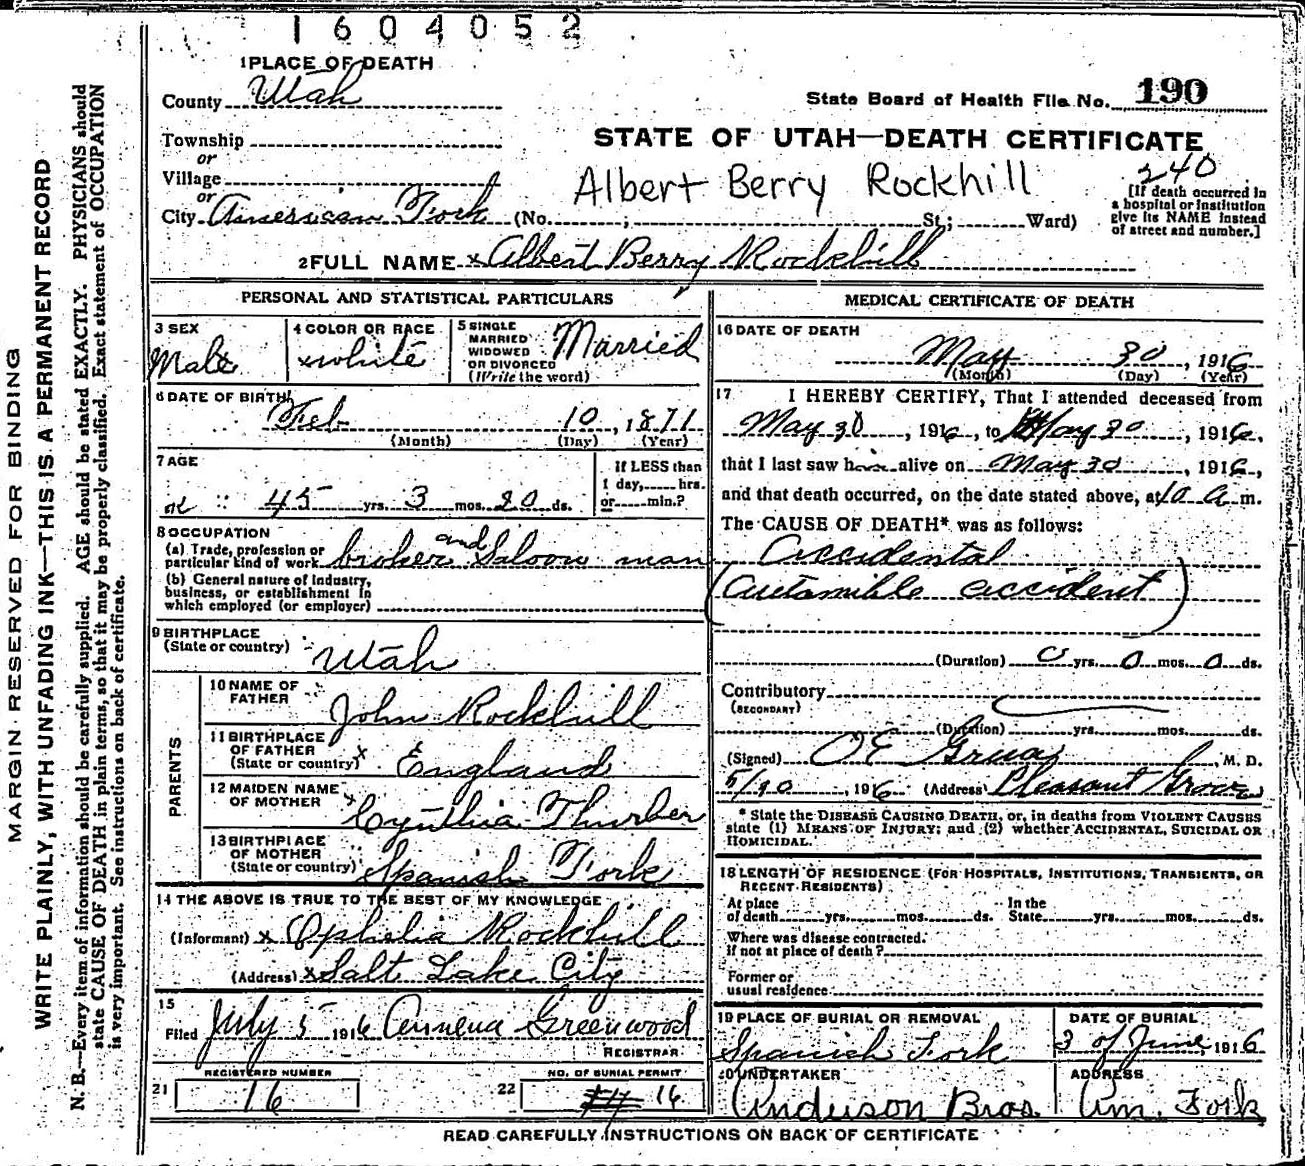 1604052
1 PLACE OF DEATH
County Utah
State Board of Health File No. 190
Township
or
STATE OF UTAH—DEATH CERTIFICATE
Village
or
Albert Berry Rockhill
240
City American Fork (No. ; St.; Ward)
[If death occurred in
a hospital or institution
give its NAME instead
of street and number.]
2 FULL NAME x Albert Berry Rockhill
PERSONAL AND STATISTICAL PARTICULARS
3 SEX
Male
4 COLOR OR RACE
x white
5 SINGLE
MARRIED
WIDOWED
OR DIVORCED
(Write the word)
Married
6 DATE OF BIRTH
Feb 10, 1871
(Month) (Day) (Year)
7 AGE
45 yrs. 3 mos. 20 ds.
If LESS than
1 day, hrs.
or min.?
8 OCCUPATION
(a) Trade, profession or
particular kind of work broker and Saloon man
(b) General nature of Industry,
business, or establishment in
which employed (or employer)
9 BIRTHPLACE
(State or country) Utah
PARENTS
10 NAME OF
FATHER John Rockhill
11 BIRTHPLACE
OF FATHER
(State or country) x England
12 MAIDEN NAME
OF MOTHER x Cynthia Thurber
13 BIRTHPLACE
OF MOTHER
(State or country) Spanish Fork
14 THE ABOVE IS TRUE TO THE BEST OF MY KNOWLEDGE
(Informant) x Ophelia Rockhill
(Address) x Salt Lake City
15
Filed July 5 1916 Annena Greenwood
REGISTRAR
REGISTERED NUMBER
21 16
NO. OF BURIAL PERMIT
22 16
MEDICAL CERTIFICATE OF DEATH
16 DATE OF DEATH
May 30, 1916
(Month) (Day) (Year)
17 I HEREBY CERTIFY, That I attended deceased from
May 30, 1916, to May 30, 1916,
that I last saw h alive on May 30, 1916,
and that death occurred, on the date stated above, at 10 a m.
The CAUSE OF DEATH* was as follows:
Accidental
(automible accident)
(Duration) 0 yrs. 0 mos. 0 ds.
Contributory
(SECONDARY)
(Duration) yrs. mos. ds.
(Signed) O E Grua, M. D.
, 1916 (Address) Pleasant Grove
* State the DISEASE CAUSING DEATH, or, in deaths from VIOLENT CAUSES
state (1) MEANS OF INJURY; and (2) whether ACCIDENTAL, SUICIDAL OR
HOMICIDAL.
18 LENGTH OF RESIDENCE (FOR HOSPITALS, INSTITUTIONS, TRANSIENTS, OR
RECENT RESIDENTS)
At place In the
of death yrs. mos. ds. State yrs. mos. ds.
Where was disease contracted.
if not at place of death?
Former or
usual residence
19 PLACE OF BURIAL OR REMOVAL
Spanish Fork
DATE OF BURIAL
3 of June, 1916
20 UNDERTAKER
Anderson Bros.
ADDRESS
Am. Fork
READ CAREFULLY INSTRUCTIONS ON BACK OF CERTIFICATE
MARGIN RESERVED FOR BINDING
WRITE PLAINLY, WITH UNFADING INK—THIS IS A PERMANENT RECORD
N. B.—Every item of information should be carefully supplied. AGE should be stated EXACTLY. PHYSICIANS should
state CAUSE OF DEATH in plain terms, so that it may be properly classified. Exact statement of OCCUPATION
is very important. See instructions on back of certificate.